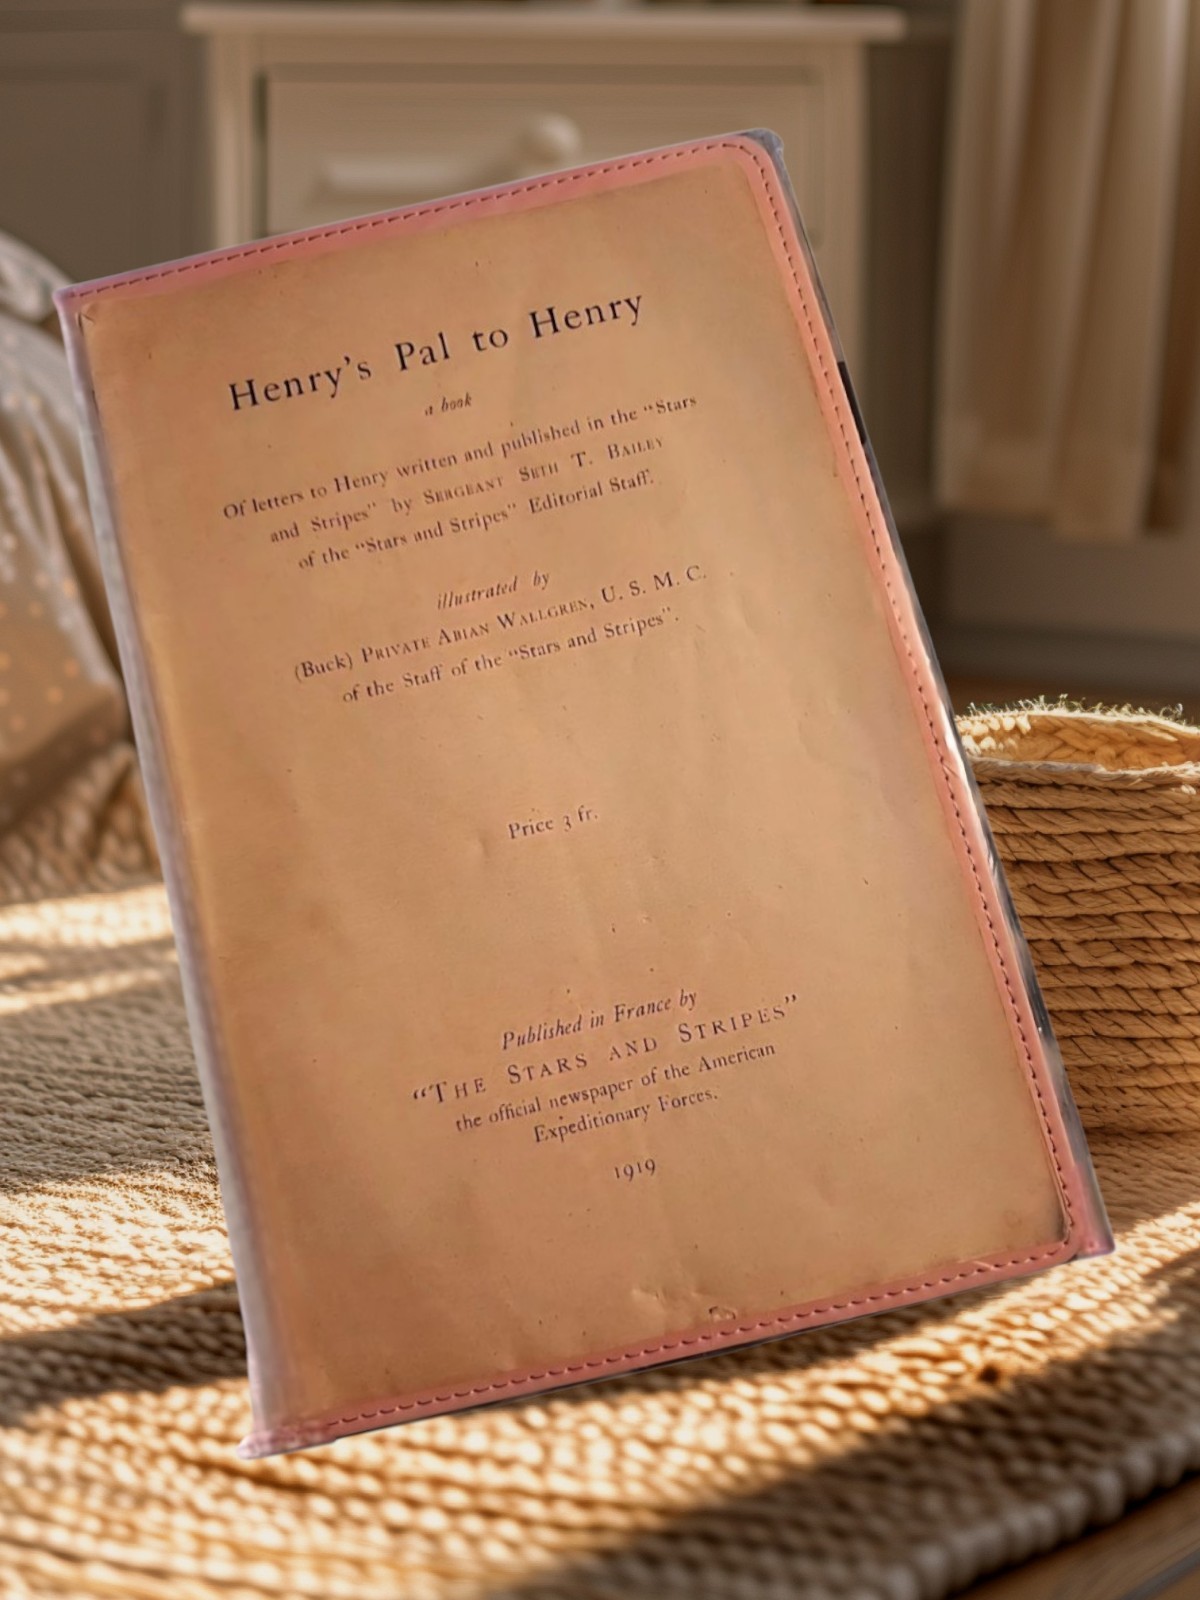 Henry's Pal to Henry
a book
Of letters to Henry written and published in the “Stars
and Stripes” by Sergeant Seth T. Bailey
of the “Stars and Stripes” Editorial Staff.
illustrated by
(Buck) Private Abian Wallgren, U. S. M. C.
of the Staff of the “Stars and Stripes”.
Price 3 fr.
Published in France by
“The Stars and Stripes”
the official newspaper of the American
Expeditionary Forces.
1919